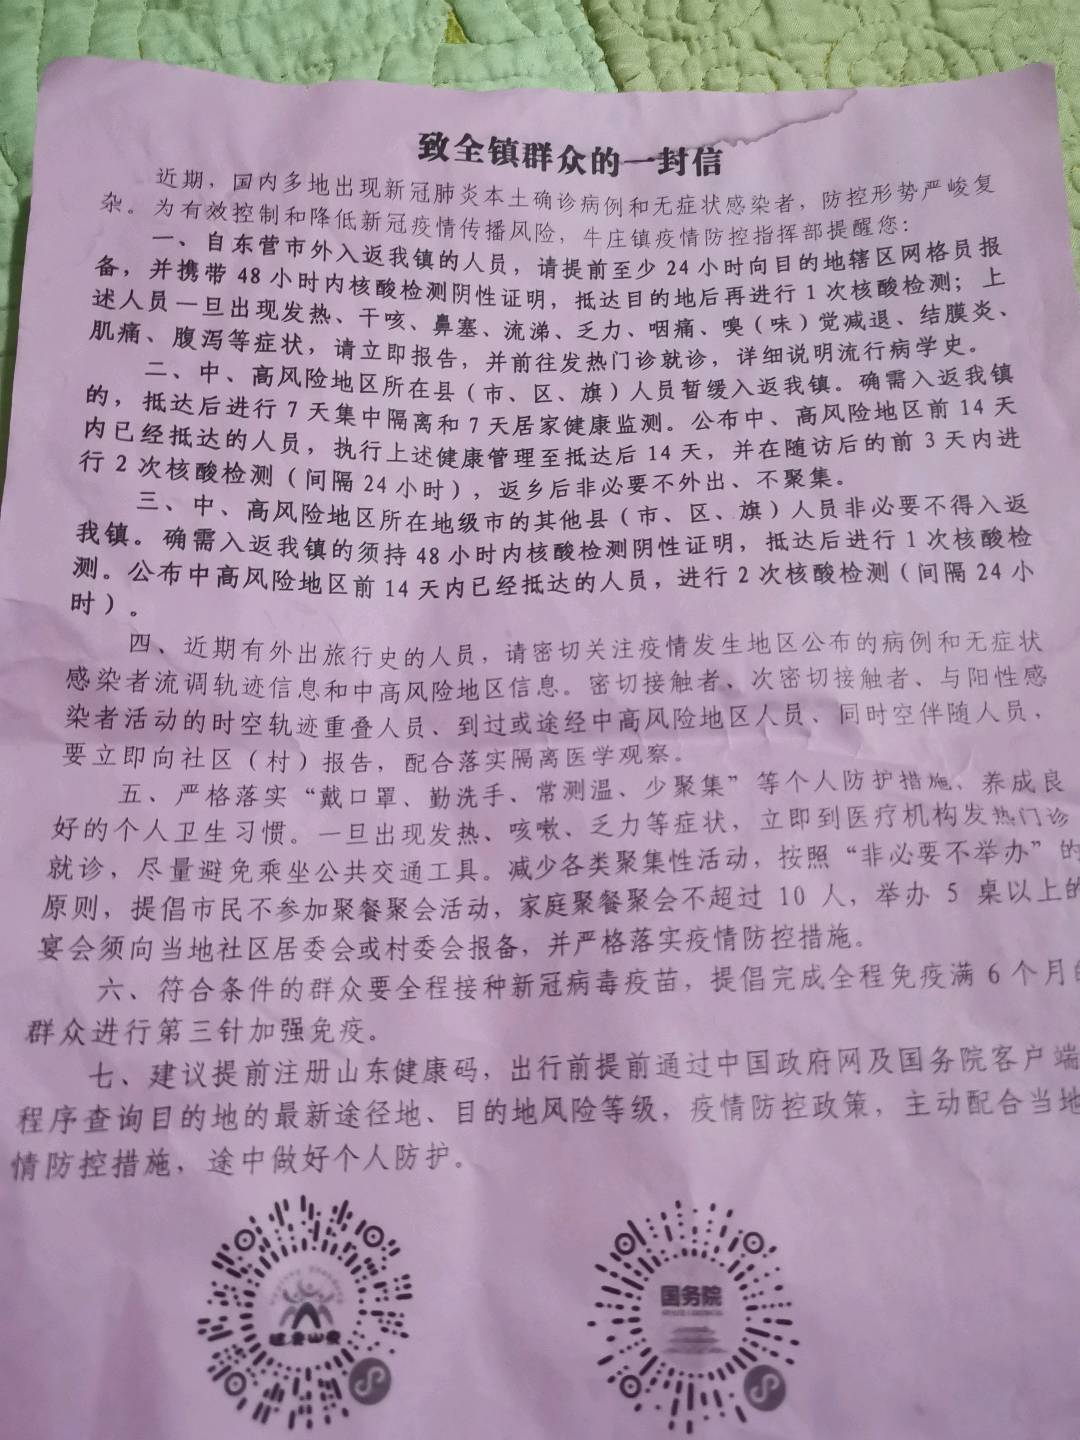 致全镇群众的一封信
近期，国内多地出现新冠肺炎本土确诊病例和无症状感染者，防控形势严峻复
杂。为有效控制和降低新冠疫情传播风险，牛庄镇疫情防控指挥部提醒您：
一、自东营市外入返我镇的人员，请提前至少24小时向目的地辖区网格员报
备，并携带48小时内核酸检测阴性证明，抵达目的地后再进行1次核酸检测；上
述人员一旦出现发热、干咳、鼻塞、流涕、乏力、咽痛、嗅（味）觉减退、结膜炎、
肌痛、腹泻等症状，请立即报告，并前往发热门诊就诊，详细说明流行病学史。
二、中、高风险地区所在县（市、区、旗）人员暂缓入返我镇。确需入返我镇
的，抵达后进行7天集中隔离和7天居家健康监测。公布中、高风险地区前14天
内已经抵达的人员，执行上述健康管理至抵达后14天，并在随访后的前3天内进
行2次核酸检测（间隔24小时），返乡后非必要不外出、不聚集。
三、中、高风险地区所在地级市的其他县（市、区、旗）人员非必要不得入返
我镇。确需入返我镇的须持48小时内核酸检测阴性证明，抵达后进行1次核酸检
测。公布中高风险地区前14天内已经抵达的人员，进行2次核酸检测（间隔24小
时）。
四、近期有外出旅行史的人员，请密切关注疫情发生地区公布的病例和无症状
感染者流调轨迹信息和中高风险地区信息。密切接触者、次密切接触者、与阳性感
染者活动的时空轨迹重叠人员、到过或途经中高风险地区人员、同时空伴随人员，
要立即向社区（村）报告，配合落实隔离医学观察。
五、严格落实“戴口罩、勤洗手、常测温、少聚集”等个人防护措施、养成良
好的个人卫生习惯。一旦出现发热、咳嗽、乏力等症状，立即到医疗机构发热门诊
就诊，尽量避免乘坐公共交通工具。减少各类聚集性活动，按照“非必要不举办”的
原则，提倡市民不参加聚餐聚会活动，家庭聚餐聚会不超过10人，举办5桌以上的
宴会须向当地社区居委会或村委会报备，并严格落实疫情防控措施。
六、符合条件的群众要全程接种新冠病毒疫苗，提倡完成全程免疫满6个月的
群众进行第三针加强免疫。
七、建议提前注册山东健康码，出行前提前通过中国政府网及国务院客户端
程序查询目的地的最新途径地、目的地风险等级，疫情防控政策，主动配合当地
情防控措施，途中做好个人防护。
国务院